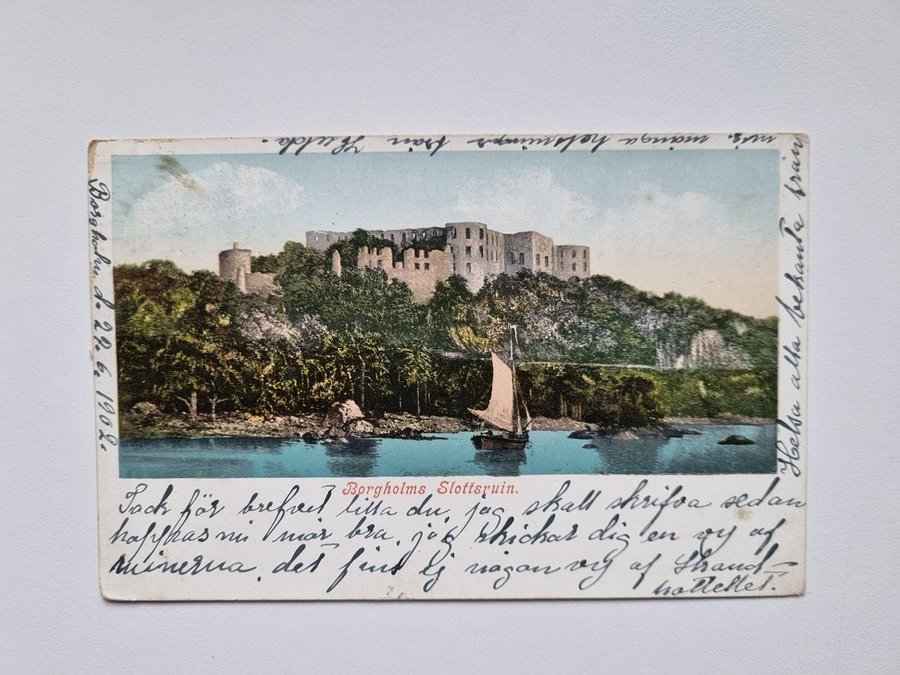 Borgholms Slottsruin.
Tack för brefvet lilla du, jag skall skrifva sedan
hoppas ni mår bra, jag skickar dig en vy af
ruinerna, det fins ej någon vy af Strand-
hotellet.
Helsa alla bekanta från
mig. många helsningar från Hulda.
Borgholm d. 29. 6. 1902.